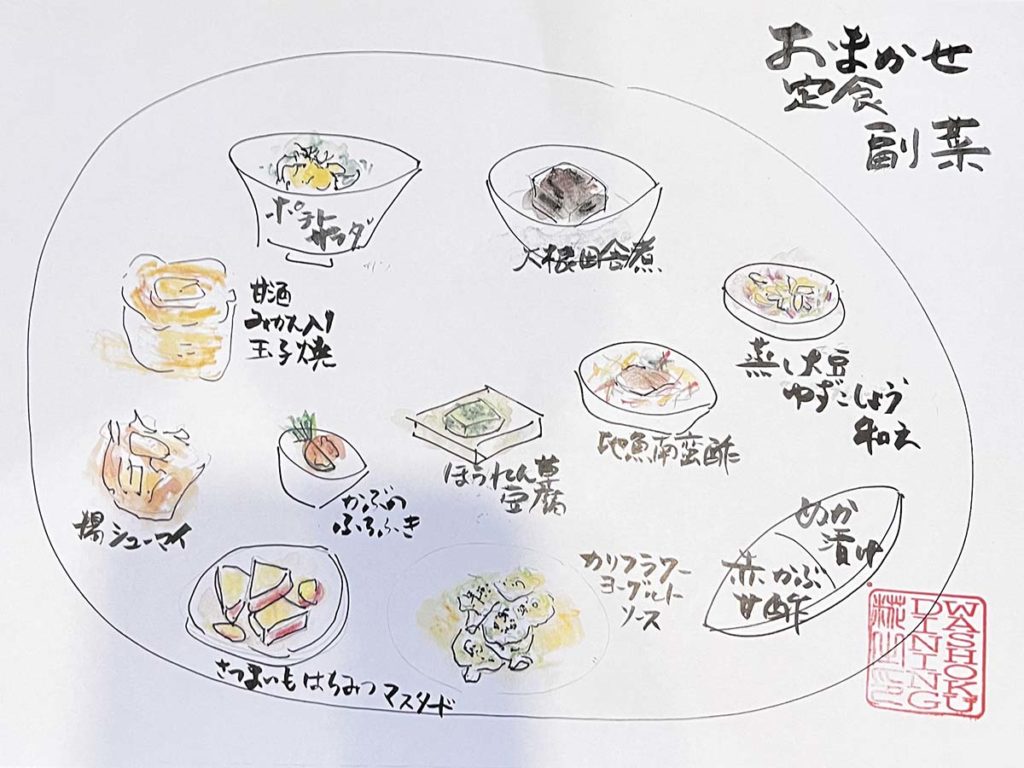 おまかせ
定食
副菜
ポテト
サラダ
大根田舎煮
甘酒
みかん入り
玉子焼
蒸し大豆
ゆずこしょう
和え
地魚南蛮酢
ほうれん草
豆腐
揚シューマイ
かぶの
ふろふき
カリフラワー
ヨーグルト
ソース
ぬか
漬け
赤かぶ
甘酢
さつまいもはちみつマスタード
WASHOKU
DINING